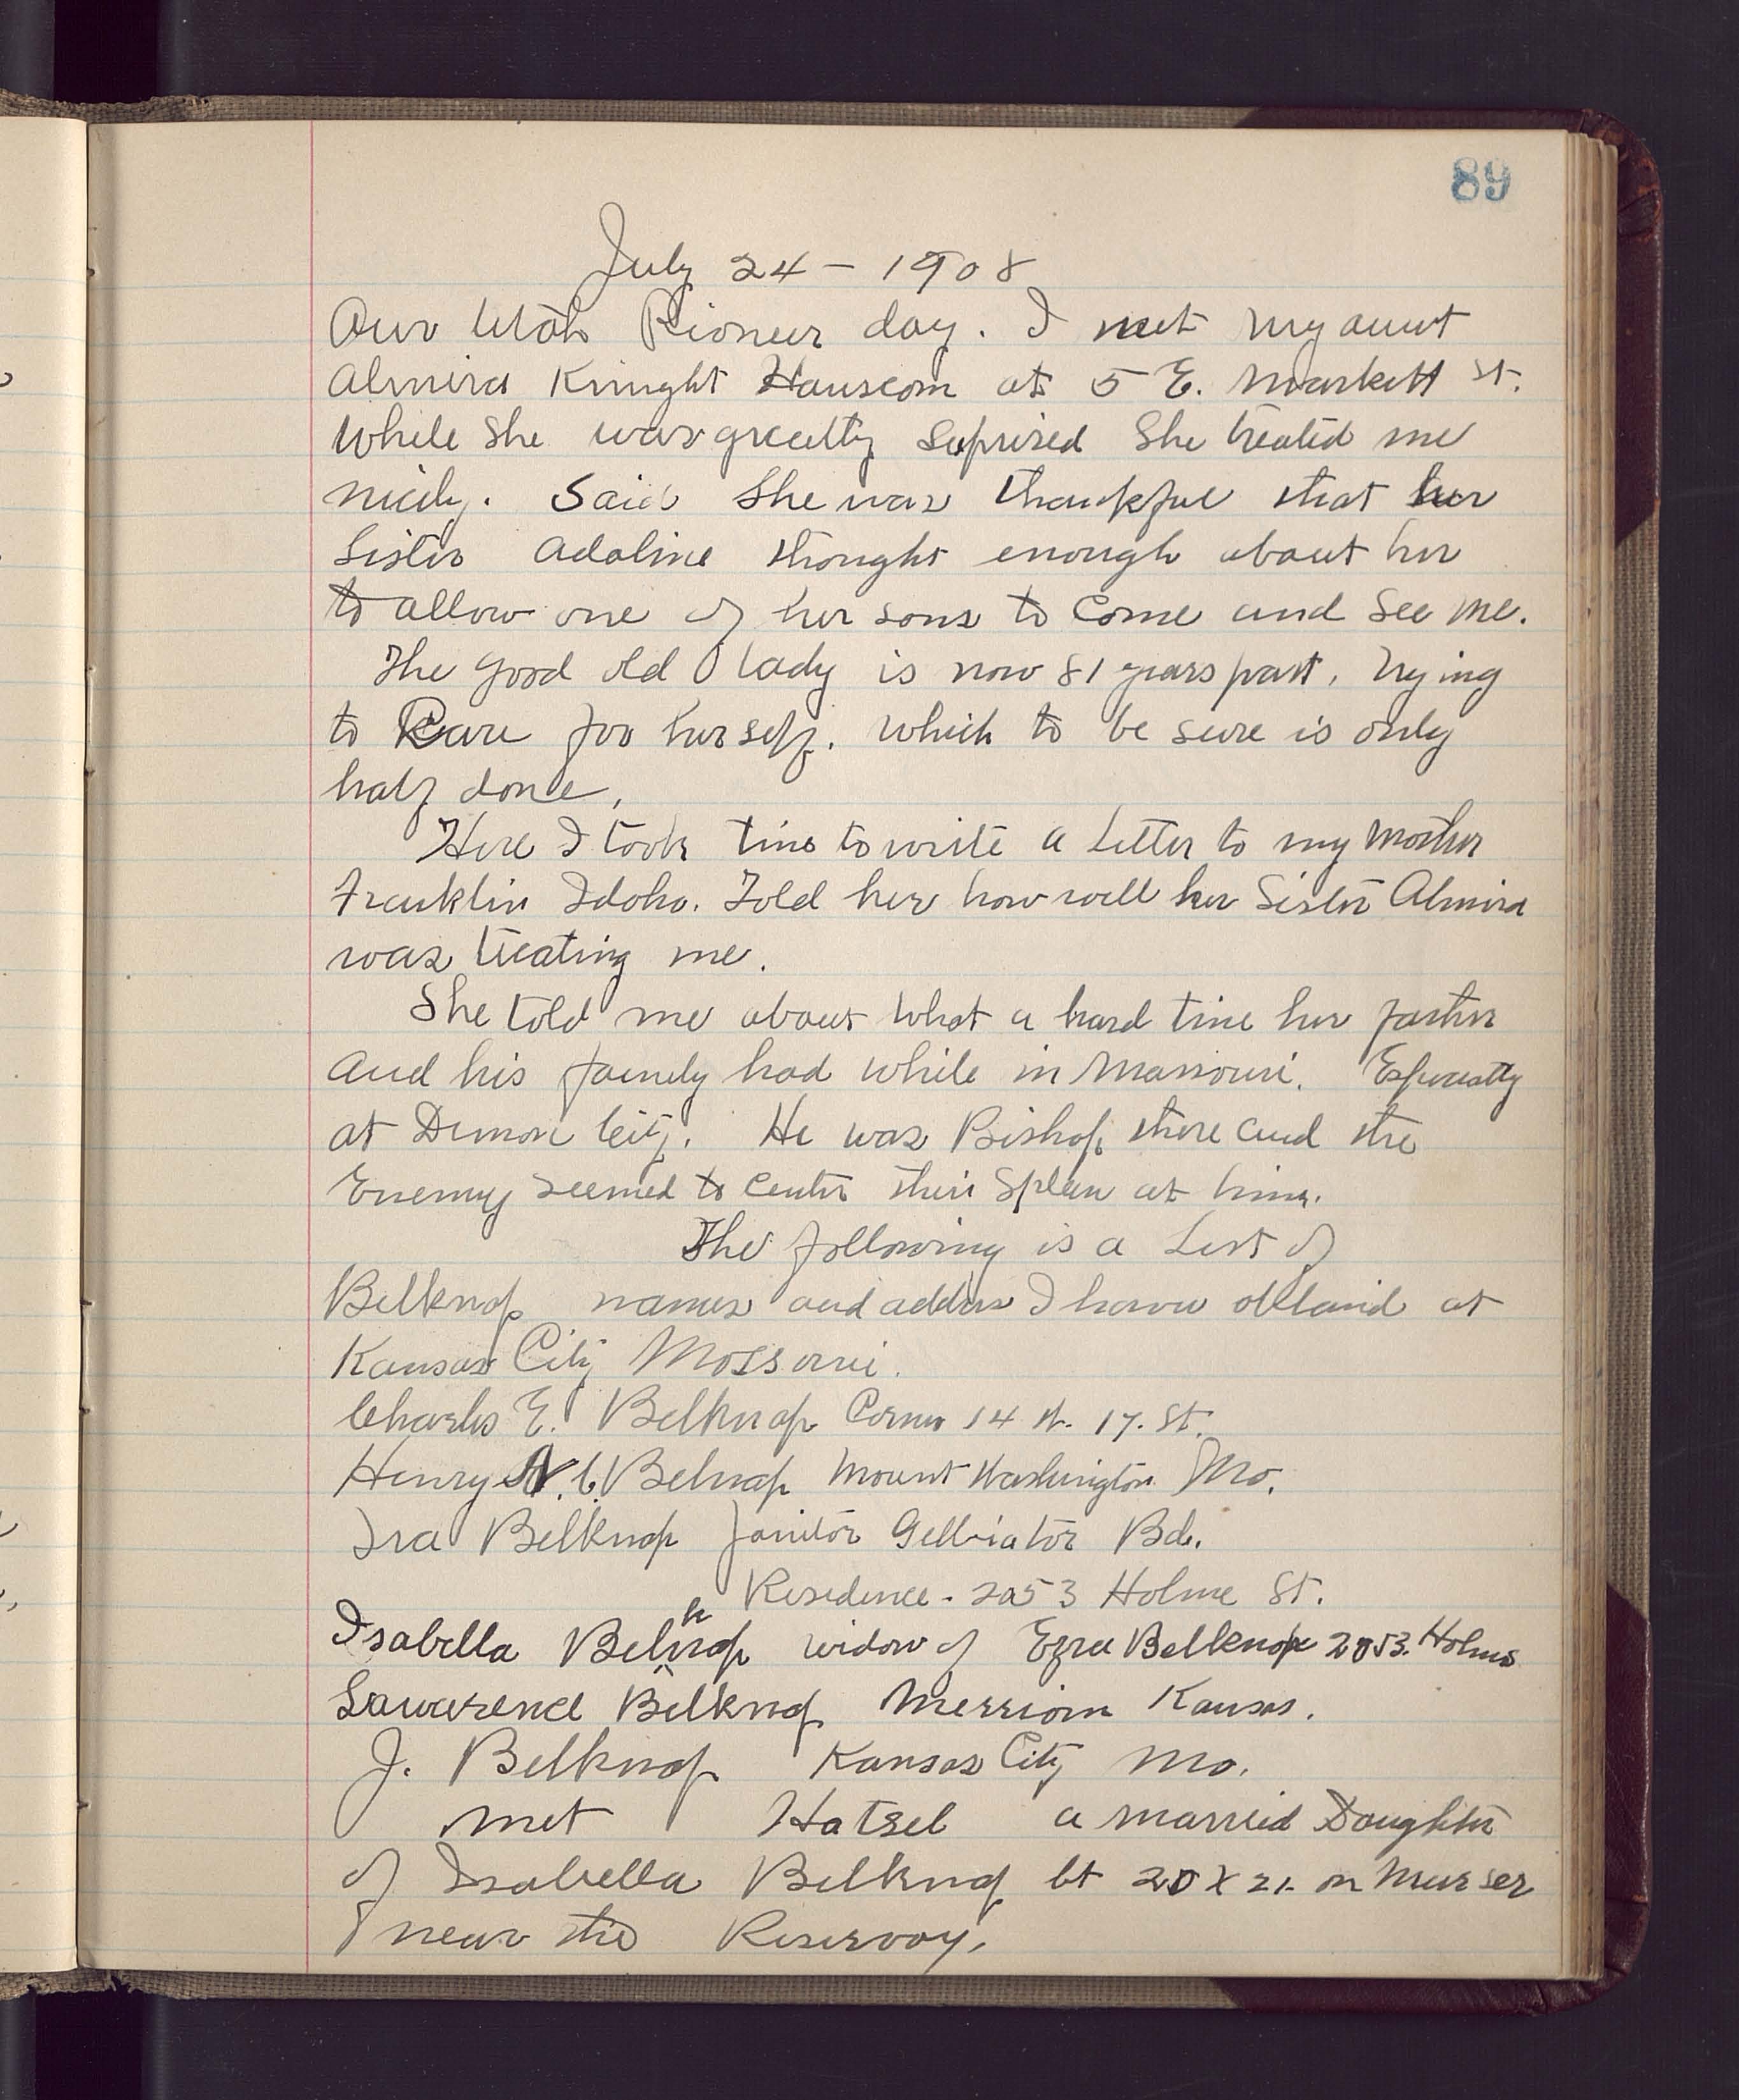 89
July 24 - 1908
Our Utah Pioneer day. I met my aunt
Almira Knight Hanscom at 5 E. Markett St.
While She was greatly Suprised She treated me
nicely. Said She was thankful that her
Sister Adaline thought enough about her
to allow one of her sons to Come and See me.
The good old lady is now 81 years past, trying
to Care for her self. Which to be sure is only
half done,
Here I took time to write a Letter to my Mother
Franklin Idaho. Told her how well her Sister Almira
was treating me.
She told me about What a hard time her father
And his family had while in Missouri. Especially
at City. He was Bishop there and the
Enemy seemed to Center their Spleen at him.
The following is a List of
Belknap names and address I have obtaind at
Kansas City Mossouri.
Charles E. Belknap Corner 14 N. 17. St.
Henry N. C. Belnap Mount Washington Mo.
Ira Belknap Janitor Bd.
Residence - 2053 Holme St.
Isabella Belknap widow of Ezra Belknap 2053. Holms
Lawerence Belknap Merriam Kansas.
J. Belknap Kansas City Mo.
met Hatsel a married Daughter
of Isabella Belknap bt 20 X 21. on Murser
near the Reservoy.